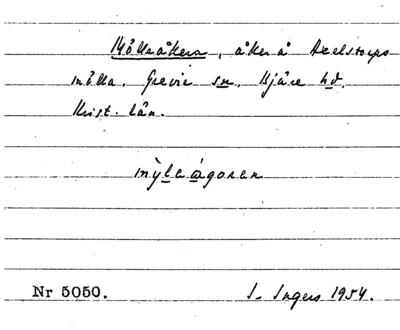 Mölleåkern, åker å Axelstorps
mölla, Grevie sn, Bjäre hd.
Krist. län.
mỳleågoren
Nr 5050. I. Ingers 1954.